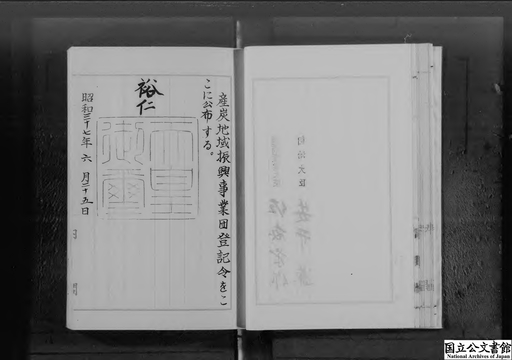 産炭地域振興事業団登記令をこ
こに公布する。
裕仁
天皇御璽
昭和三十七年六月二十五日
国立公文書館
National Archives of Japan